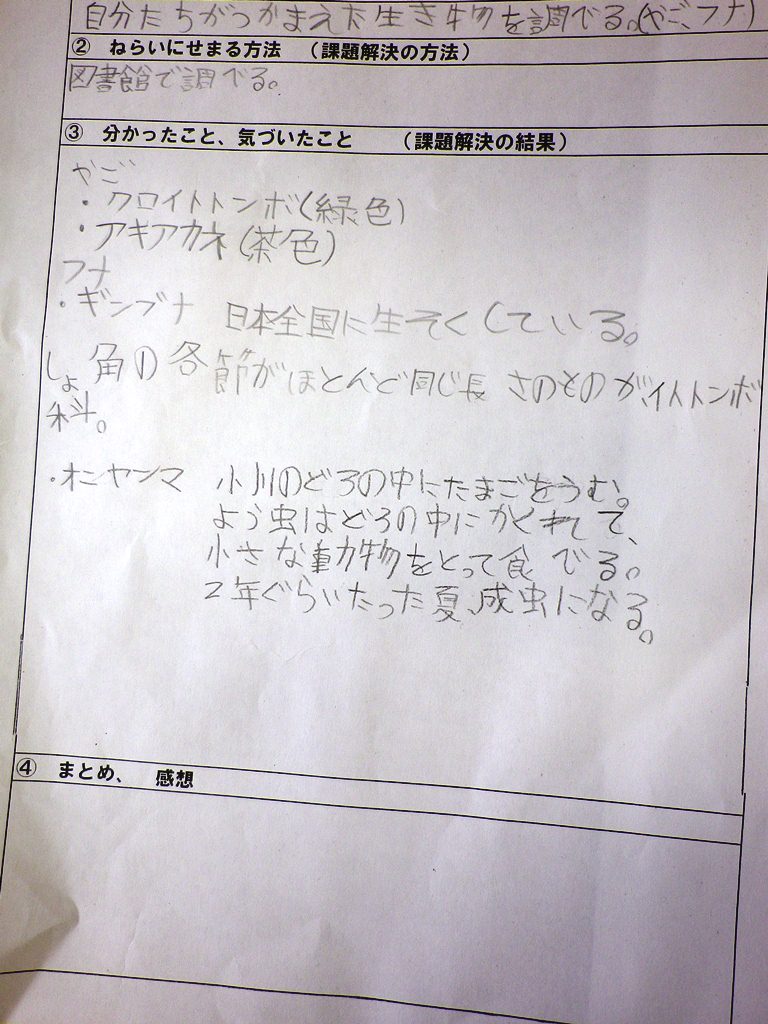 自分たちがつかまえた生き物を調べる。(やご、フナ)
② ねらいにせまる方法 (課題解決の方法)
図書館で調べる。
③ 分かったこと、気づいたこと (課題解決の結果)
やご
・クロイトトンボ(緑色)
・アキアカネ(茶色)
フナ
・ギンブナ 日本全国に生そくしている。
しょ角の各節がほとんど同じ長さのものが、イトトンボ
科。
・オニヤンマ 小川のどろの中にたまごをうむ。
よう虫はどろの中にかくれて、
小さな動物をとって食べる。
2年ぐらいたった夏、成虫になる。
④ まとめ、 感想